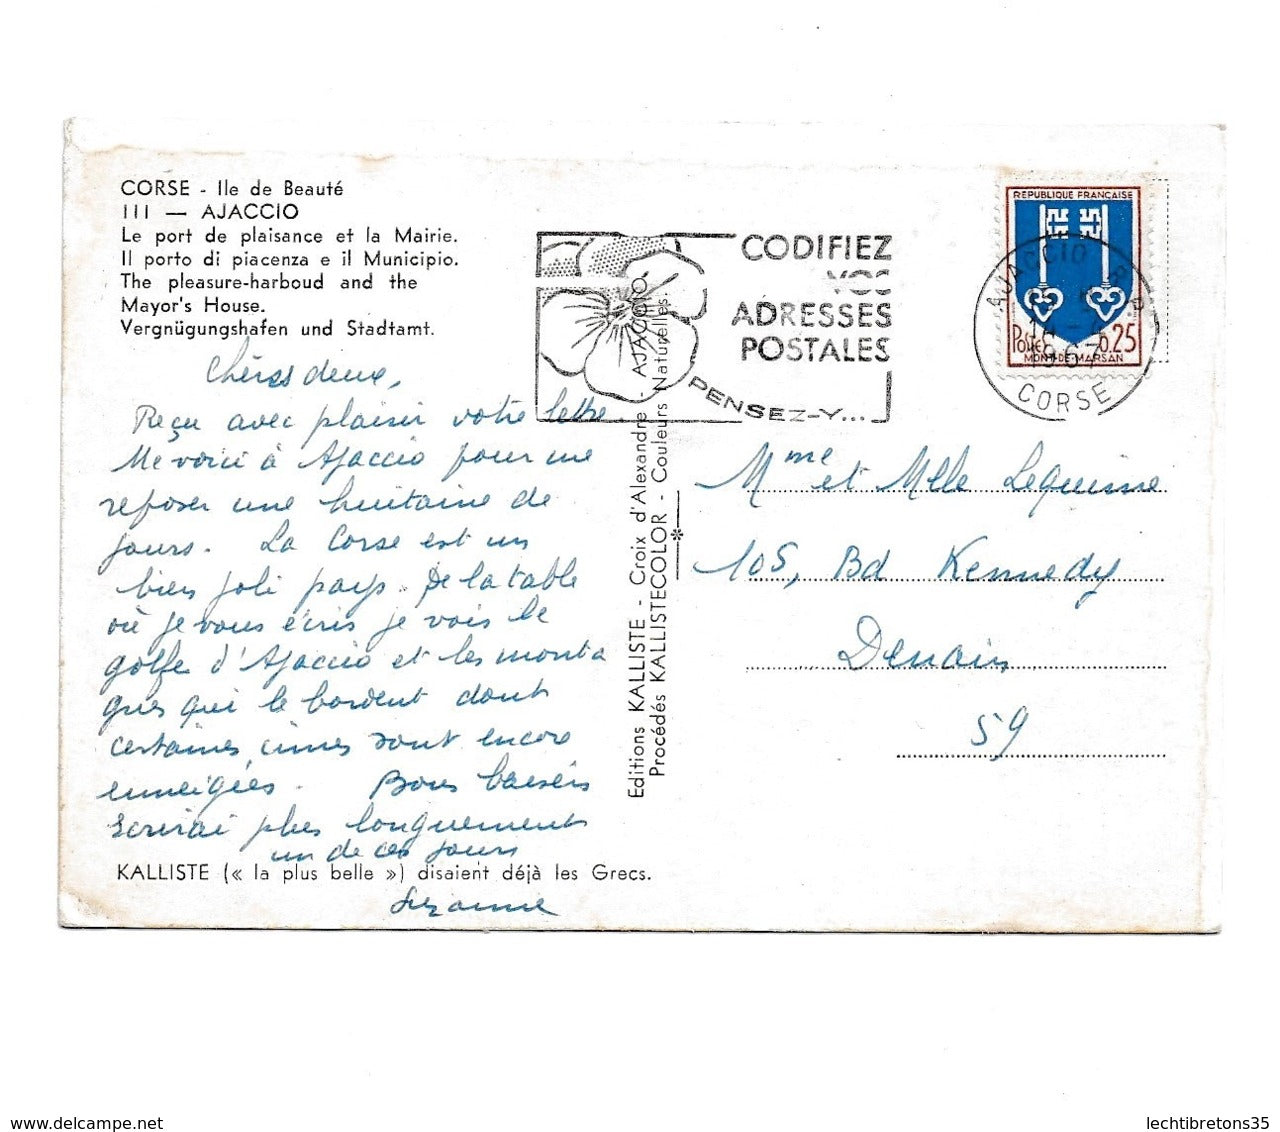 CORSE - Ile de Beauté
III — AJACCIO
Le port de plaisance et la Mairie.
Il porto di piacenza e il Municipio.
The pleasure-harboud and the
Mayor's House.
Vergnügungshafen und Stadtamt.
Chères deux,
Reçu avec plaisir votre lettre.
Me voici à Ajaccio pour me
reposer une huitaine de
jours. La Corse est un
bien joli pays. De la table
où je vous écris je vois le
golfe d'Ajaccio et les monta
gnes qui le bordent dont
certaines cimes sont encore
enneigées. Bons baisers
Ecrirai plus longuement
un de ces jours
KALLISTE (« la plus belle ») disaient déjà les Grecs.
Suzanne
Editions KALLISTE - Croix d'Alexandre - AJACCIO.
Procédés KALLISTECOLOR - Couleurs Naturelles.
CODIFIEZ
VOS
ADRESSES
POSTALES
PENSEZ-Y...
REPUBLIQUE FRANÇAISE
Postes 0,25
MONT-DE-MARSAN
AJACCIO R.P
1967
CORSE
Mme et Mlle Lequime
105, Bd Kennedy
Denain
59
www.delcampe.net
lechtibretons35